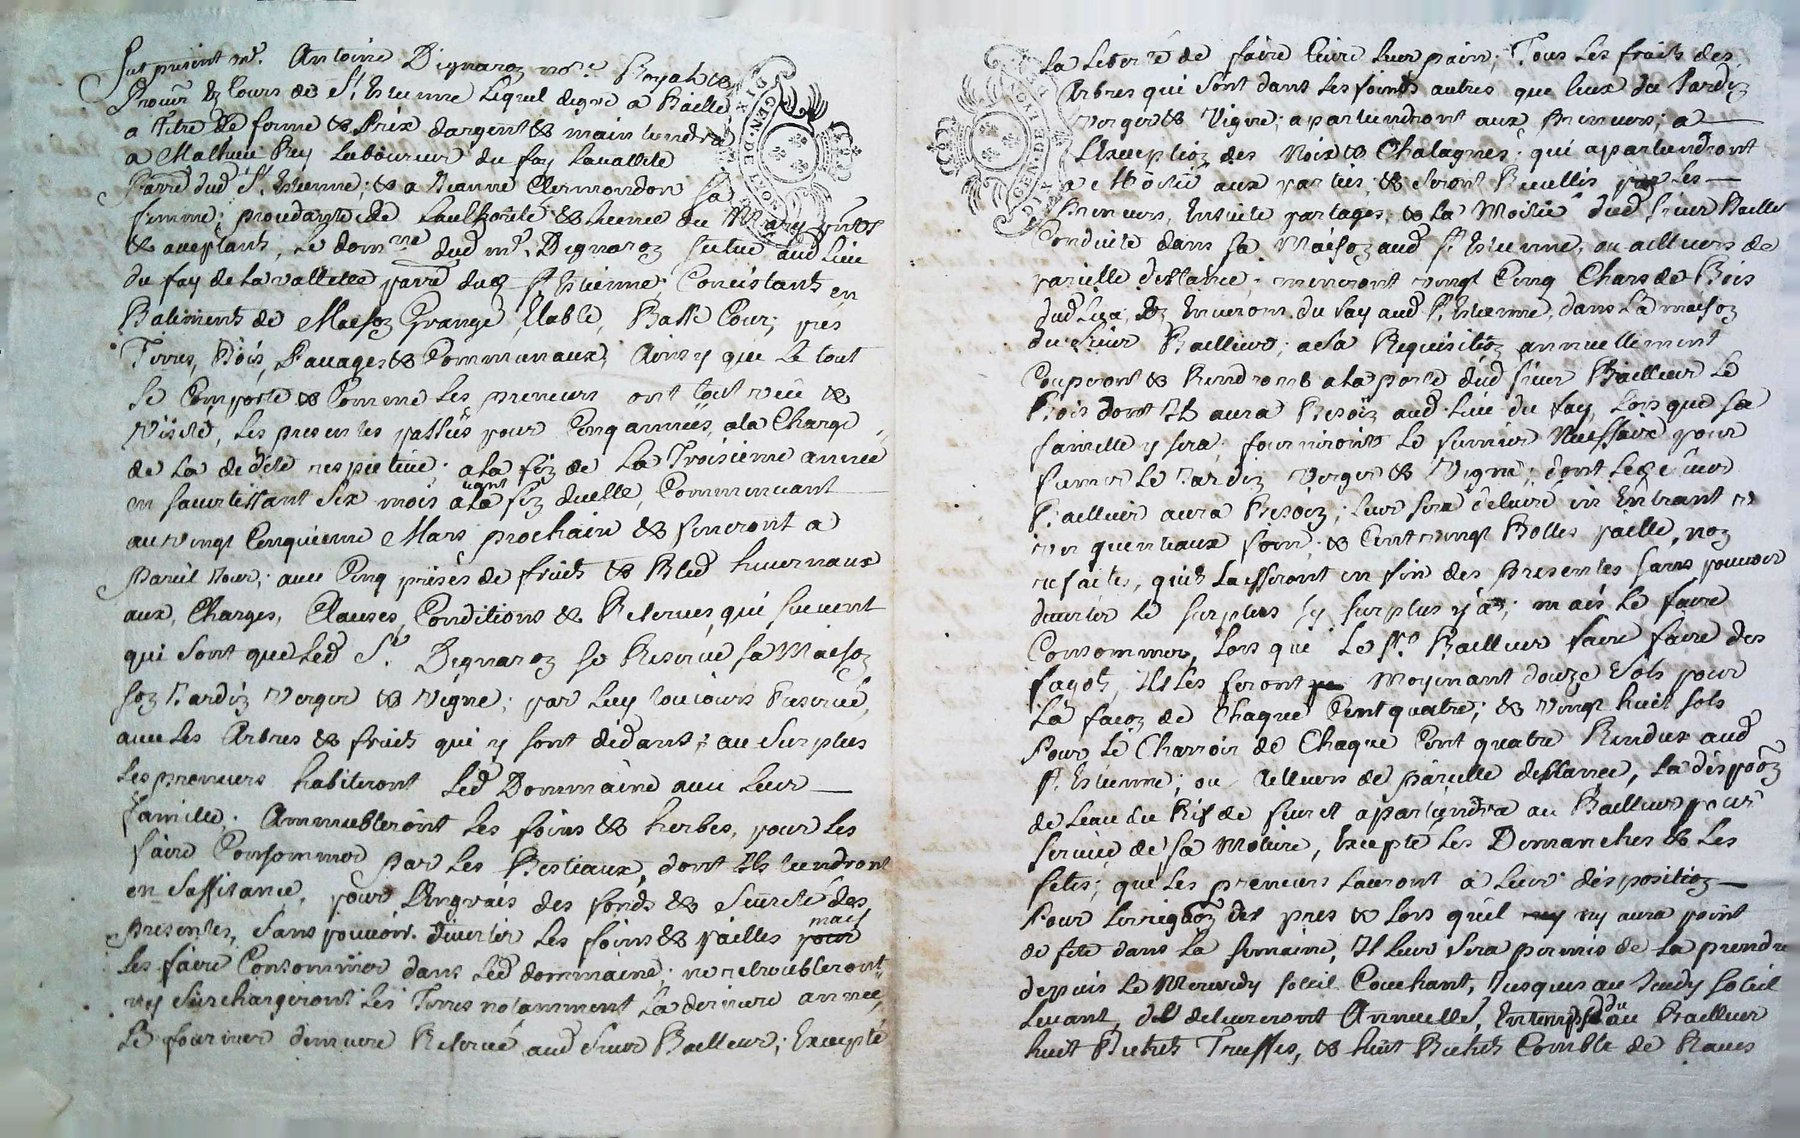 Fut présent Mr. Antoine Dignaron no.re Royal &
Procur. Ez Cours de St. Estienne Lequel digré a Baillé
a titre de ferme & Prix dargent & maintendra
a Mathieu Rey Laboureur du fay Lavallette
Parre dud St. Estienne; & a Jeanne Clermondon sa
femme; procedante de Lauthorité & licence du Mary pnts
& aceptants, Le dom.ne dud mr. Dignaron scitué aud Lieu
du fay de La vallette parre dud St. Estienne; Consistant en
Batiments de Maison Grange Etable, Basse Cour; prés
Terres, Bois, Pacages & Communaux; Ainsy que Le tout
se Comporte & Comme Les preneurs ont tout veu &
Visité, Les presentes passées pour Cinq années, a la Charge
de La dedite respective; a la fin de La Troisieme année
en savertissant six mois avant la fin dicelle, Commencant
au vingt Cinquieme Mars prochain & finiront a
Pareil Jour; avec Cinq prises de fruits & Bled hivernaux
aux Charges, Clauses, Conditions & Reserves, qui suivent
qui sont que Led Sr. Dignaron se Reserve sa Maison
son Jardin verger & vigne; par Luy toujours Reservé,
avec Les Arbres & fruits qui y sont dedans; au surplus
Les preneurs habiteront Led Dommaine avec Leur
famille; Ammeubleront Les foins & herbes, pour Les
faire Consommer par Les Bestiaux, dont Ils tiendront
en suffisance, pour L'Angrais des fonds & seureté des
presentes, sans pouvoir divertir Les foins & pailles mais
Les faire Consommer dans Led dommaine; ne retroubleront
ny surchargeront Les Terres notamment La derniere année,
Le four demeure Reservé aud sieur Bailleur; Excepté
DIX.DEN. GEN.DE
La Liberté de faire Cuire Leur pain; Tous Les fruits des
Arbres qui sont dans Les fonds autres que Ceux du Jardin
verger & vigne; apartiendront aux preneurs; a
L'Exception des Noix & Chatagnes; qui apartiendront
a Moitié aux parties, & seront Cueillis par Les
preneurs, Ensuite partagés; & La Moitié dud sieur Bailleur
Conduite dans sa Maison aud St. Estienne, ou ailleurs de
pareille distance; meneront vingt Cinq Chars de Bois
dud Lieu, Ez Environs du fay aud St. Estienne, dans La maison
du sieur Bailleur; a sa Requisition annuellement
Couperont & Rendront a la porte dud sieur Bailleur Le
Bois dont Il aura Besoin aud Lieu du fay, Lors que sa
famille y sera; fourniront Le fumier Necessaire pour
fumer Le Jardin verger & Vigne; dont Led sieur
Bailleur aura Besoin; Leur sera delivré en Entrant
vn quintaux foin, & Cent vingt Bottes paille, non
refaites, quils Laisseront en fin des presentes sans pouvoir
divertir Le surplus sy surplus y a; mais Le faire
Consommer, Lors que Le Sr. Bailleur faire faire des
fagots, Ils Les feront Moyenant douze sols pour
La facon de Chaque Cent quatre; & vingt huit sols
Pour Le Charroir de Chaque Cent quatre Rendus aud
St. Estienne; ou Ailleurs de pareille distance, La dispoon
de Leau du Rif de furet apartiendra au Bailleur pour
service de sa Moliere, Excepté Les Dimanches & Les
fetes; que Les preneurs Lauront a Leur disposition
Pour Lirrigaon des pres & Lors quil ny aura point
de fete dans La semaine, Il Leur sera permis de La prendre
depuis Le Mercredy soleil Couchant, Jusques au Jeudy soleil
Levant, delivreront Annuellet, au Bailleur
huit Bichets Truffes, & huit Bichets Comble de Raves